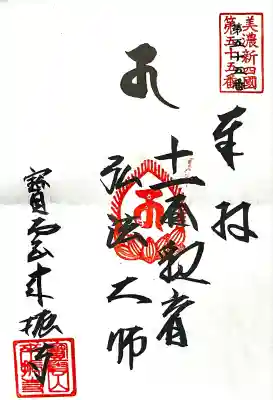 美濃新四國
第五十五番
奉拝
十一面観音
弘法大師
寶雲山来振寺